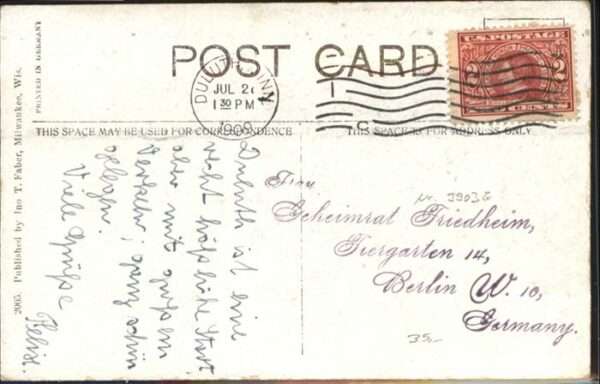 POST CARD
DULUTH, MINN.
JUL
1 30 PM
1909
U.S. POSTAGE
2 2
CENTS
THIS SPACE MAY BE USED FOR CORRESPONDENCE
THIS SPACE IS FOR ADDRESS ONLY
PRINTED IN GERMANY
2005 Published by Jno T. Faber, Milwaukee, Wis.
Duluth ist eine
recht häßliche Stadt
aber mit großem
Verkehr; ganz schön
gelegen.
Viele Grüße
Felix.
Frau
Geheimrat Friedheim,
Tiergarten 14,
Berlin W. 10,
Germany.
35-